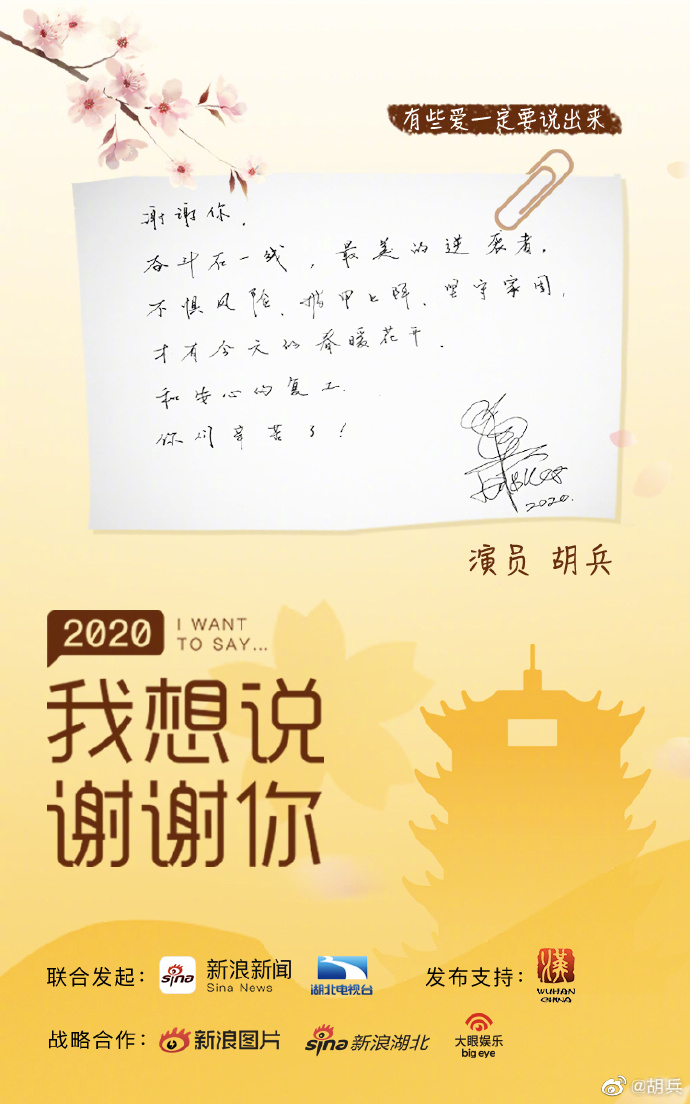 有些爱一定要说出来
谢谢你，
奋斗在一线，最美的逆袭者，
不惧风险、披甲上阵、坚守家园，
才有今天的春暖花开，
和安心的复工.
你们辛苦了！
2020.
演员 胡兵
2020
I WANT
TO SAY...
我想说
谢谢你
联合发起：
sina
新浪新闻
Sina News
湖北电视台
发布支持：
漢
WUHAN
CHINA
战略合作：
新浪图片
sina新浪湖北
大眼娱乐
big eye
@胡兵